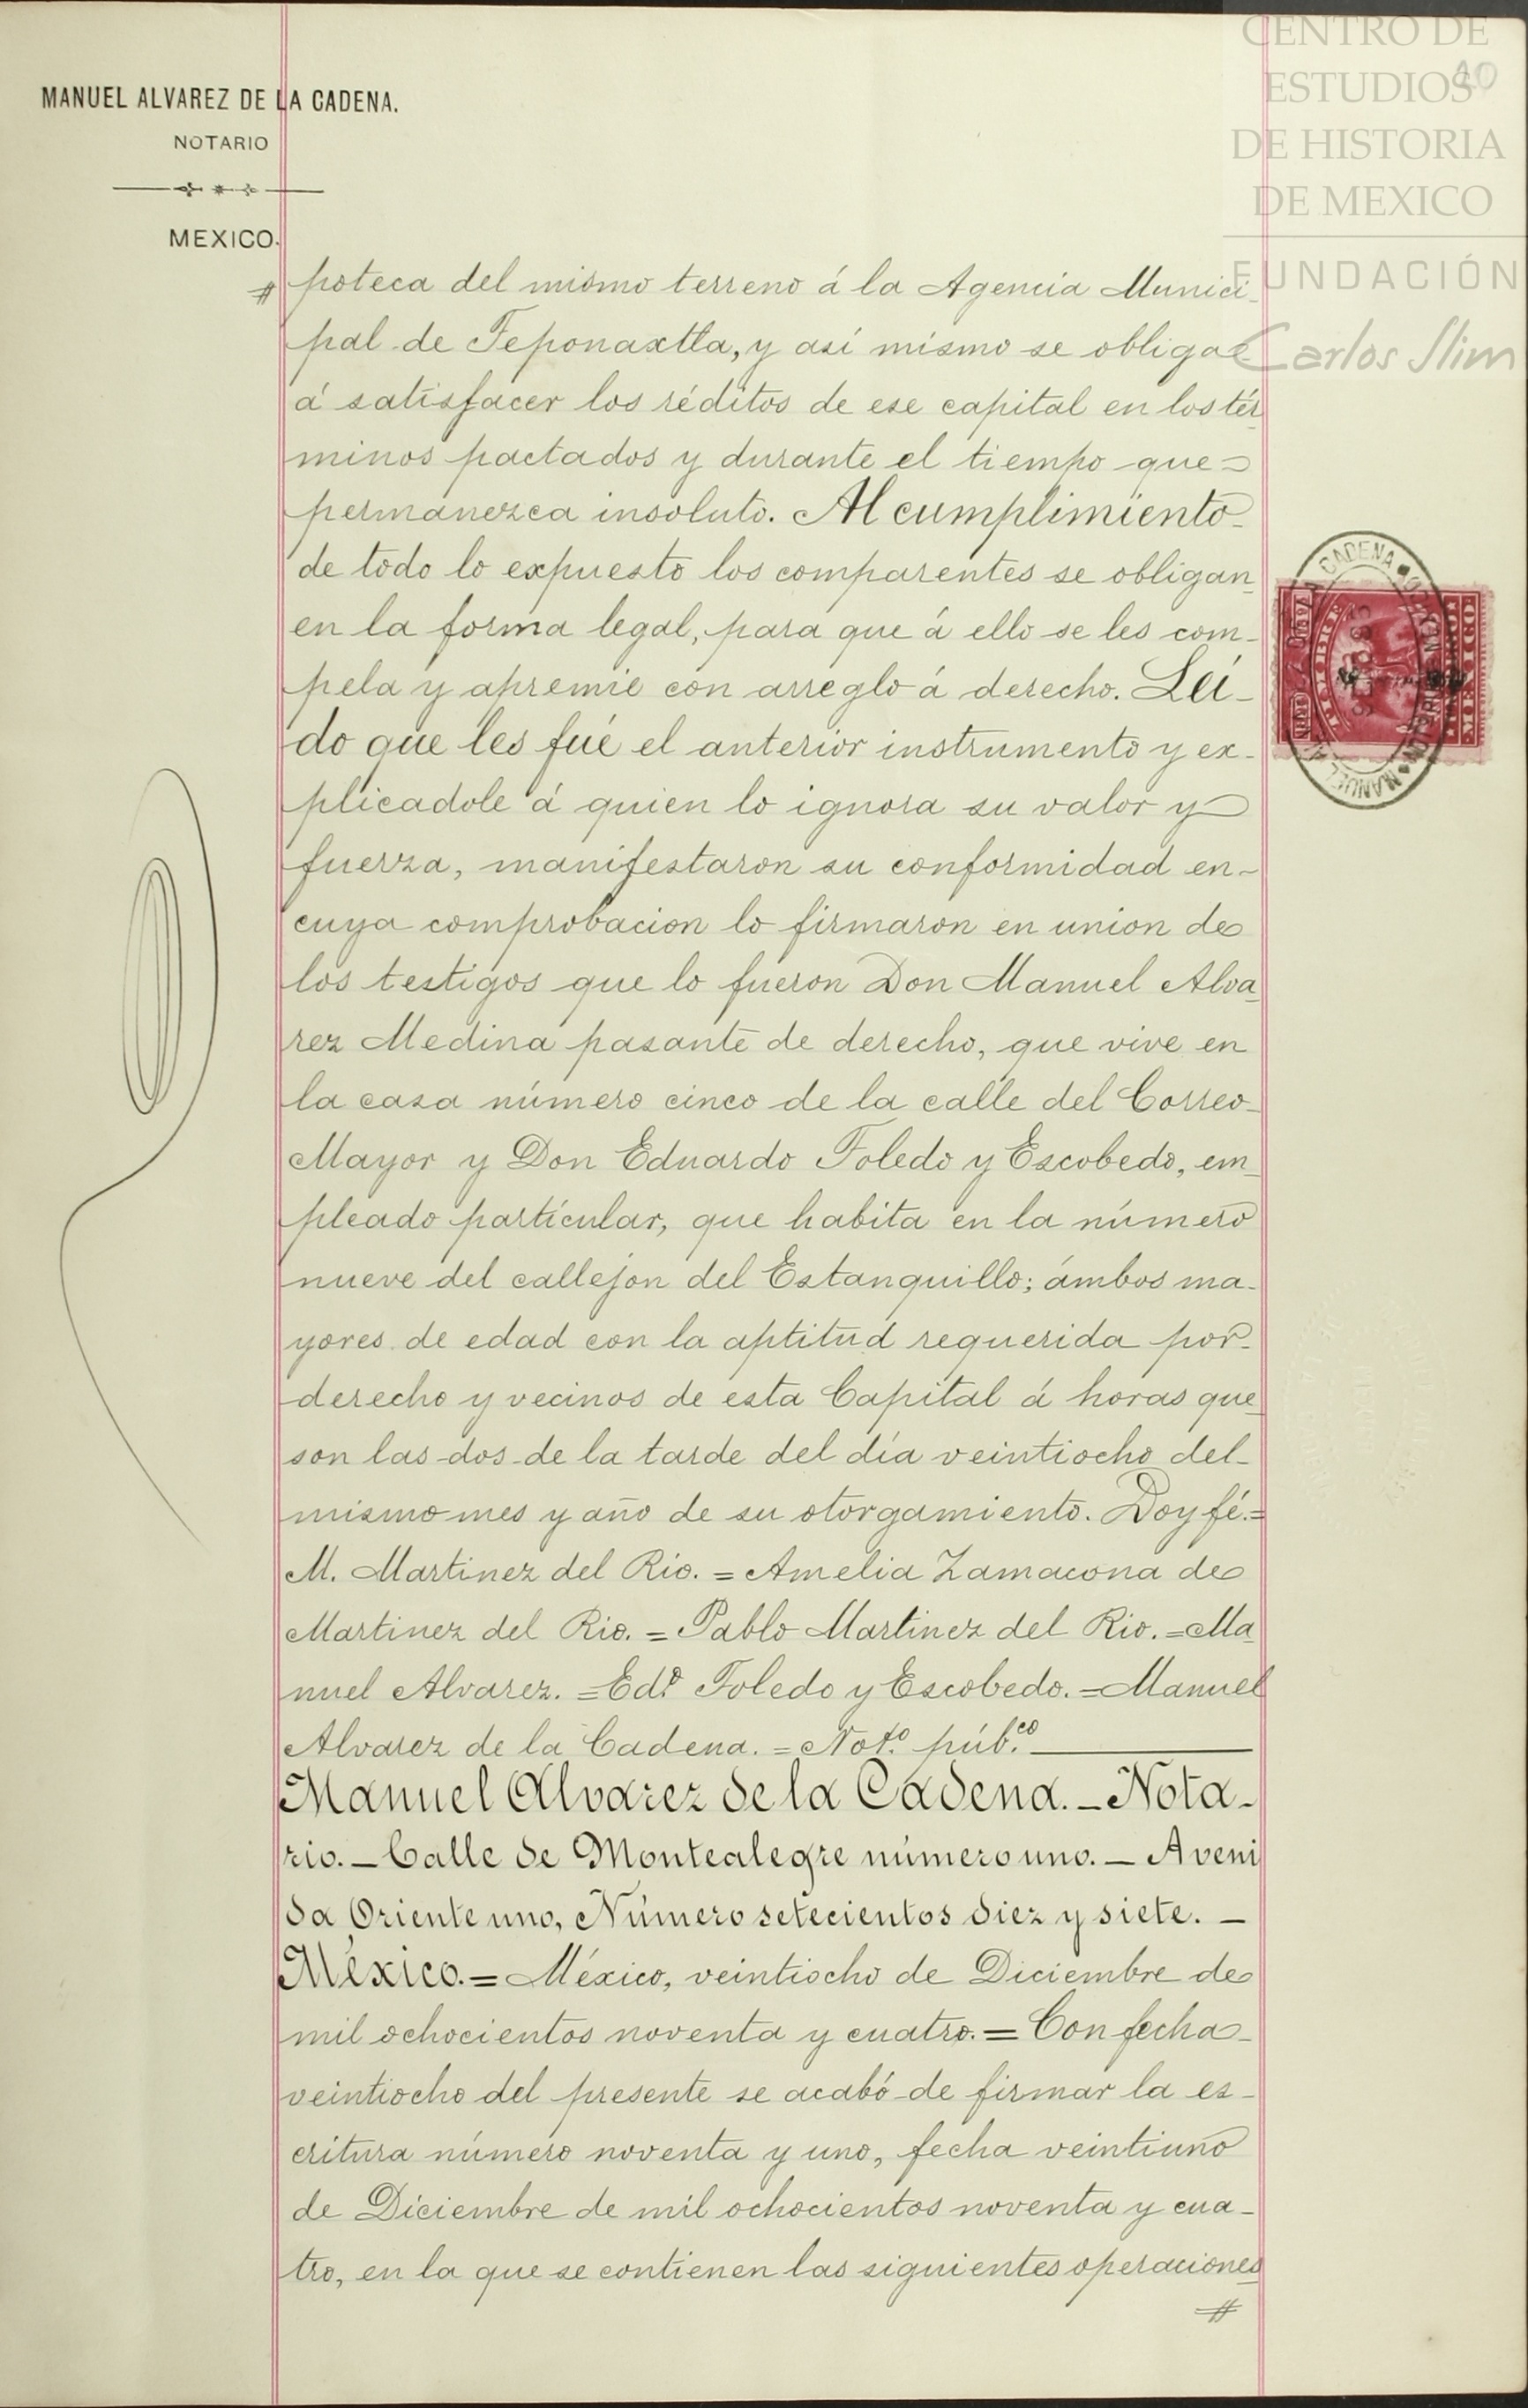 CENTRO DE
ESTUDIOS
DE HISTORIA
DE MEXICO
FUNDACIÓN
Carlos Slim
MANUEL ALVAREZ DE LA CADENA.
NOTARIO
MEXICO.
poteca del mismo terreno á la Agencia Munici-
pal de Teponaxtla, y así mismo se obliga
á satisfacer los réditos de ese capital en los tér-
minos pactados y durante el tiempo que
permanezca insoluto. Al cumplimiento
de todo lo expuesto los comparentes se obligan
en la forma legal, para que á ello se les com-
pela y apremie con arreglo á derecho. Leí-
do que les fué el anterior instrumento y ex-
plicadole á quien lo ignora su valor y
fuerza, manifestaron su conformidad en-
cuya comprobacion lo firmaron en union de
los testigos que lo fueron Don Manuel Alva-
rez Medina pasante de derecho, que vive en
la casa número cinco de la calle del Correo
Mayor y Don Eduardo Toledo y Escobedo, em-
pleado particular, que habita en la número
nueve del callejon del Estanquillo; ámbos ma-
yores de edad con la aptitud requerida por
derecho y vecinos de esta Capital á horas que
son las dos de la tarde del día veintiocho del
mismo mes y año de su otorgamiento. Doy fé.=
M. Martinez del Rio. = Amelia Zamacona de
Martinez del Rio. = Pablo Martinez del Rio. = Ma
nuel Alvarez. = Edº. Toledo y Escobedo. = Manuel
Alvarez de la Cadena. = Notº. púb.co
Manuel Alvarez de la Cadena. _ Nota-
rio. _ Calle de Montealegre número uno. _ Aveni
da Oriente uno, Número setecientos diez y siete. _
México. = México, veintiocho de Diciembre de
mil ochocientos noventa y cuatro. = Con fecha
veintiocho del presente se acabó de firmar la es-
critura número noventa y uno, fecha veintiuno
de Diciembre de mil ochocientos noventa y cua-
tro, en la que se contienen las siguientes operaciones
#
CADENA
MEXICO
MANUEL